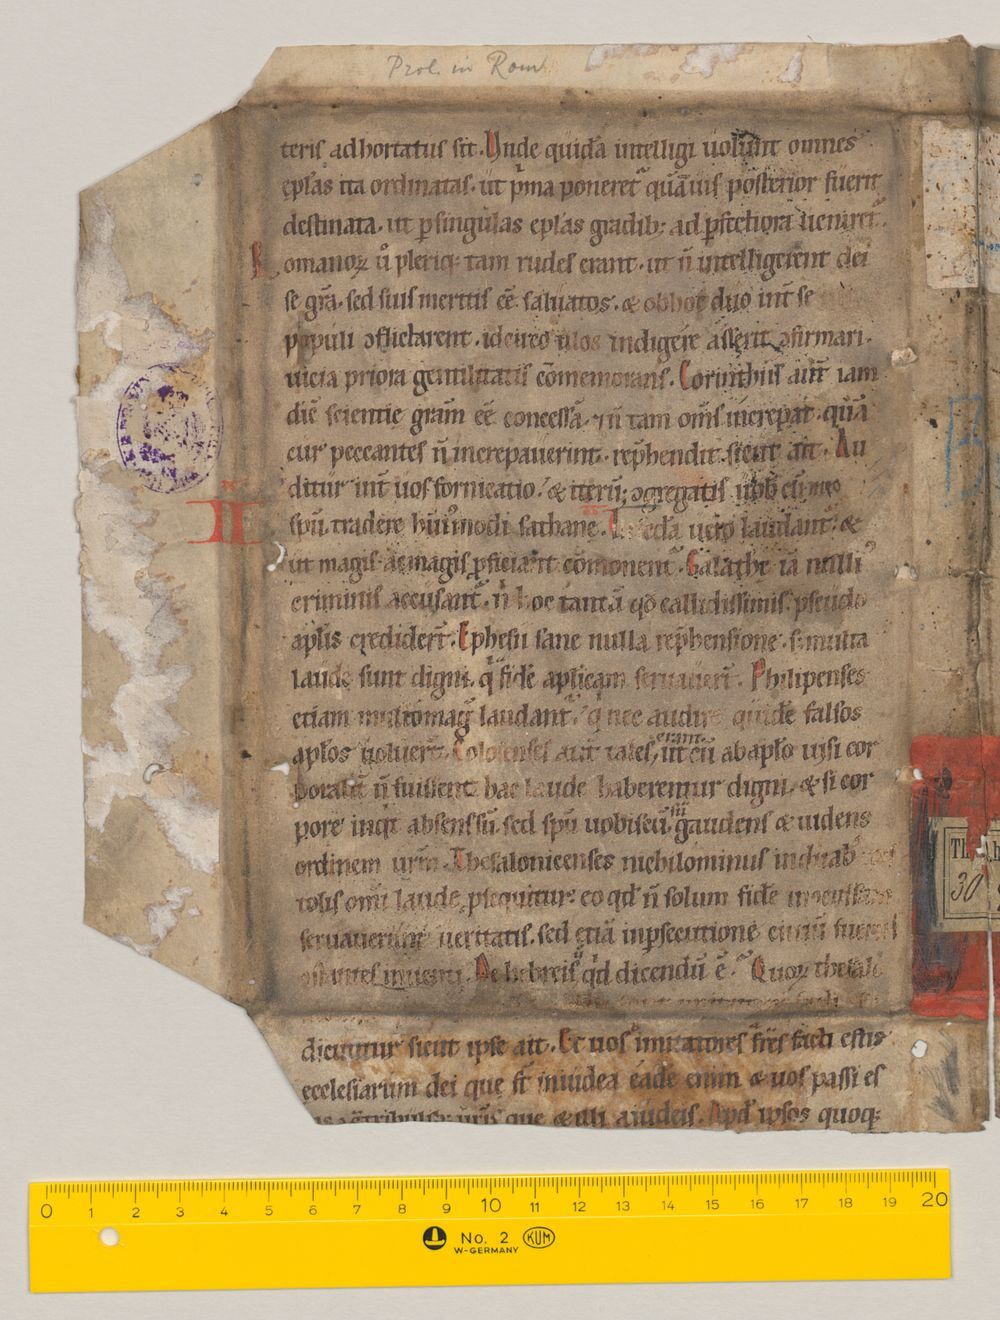 Prol. in Rom.
teris adhortatus sit. Unde quidā intelligi uolunt omnes
eplas ita ordinatas. ut pͥma poneret᷑ quāuis posterior fuerit
destinata. ut ꝑ singulas eplas gradib; ad ꝑfectiora ueniret᷑.
Romanoꝝ u̾ pleriq; tam rudes erant. ut n̄ intelligerent dei
se grā. sed suis meritis eē saluatos. & ob hoc duo int̾ se
populi ɔflictarent. idcirco illos indigere asserit ɔfirmari.
uicia priora gentilitatis cōmemorans. Corinthiis aut̄ iam
dic̄ scientie gram eē concessā. ⁊ n̄ tam om̄s increpat. quā
cur peccantes n̄ increpauerint. rep̄hendit. sicut ait. Au
ditur int̾ uos fornicatio. & iterū; ɔgregatis uob̄ cū meo
spū. tradere hui᷒modi sathane. Secđa uero laudant᷑. &
ut magis ac magis ꝓficiant cōmonent᷑. Galathe iā nulli᷒
criminis accusant᷑. n̄ hoc tantū qđ callidissimis pseudo
aplis crediderт̄. Ephesii sane nulla rep̄hensione. s; multa
laude sunt digni. qͥ fidē aplicam seruauerт̄. Philipenses
etiam multomagͥ laudant᷑. qͥ nec audire quidē falsos
aplos uoluerт̄. Colosenses aut̄ tales erant. ut cū ab aplo uisi cor
poralit̾ n̄ fuissent. hac laude haberentur digni. & si cor
pore inqͥt absens sū. sed spū uobiscū sū gaudens & uidens
ordinem urm̄. Thesalonicenses nichilominus in duab
tolis om̄i laude ꝓsequitur. eo qđ n̄ solum fidē inconcussam
seruauerunt ueritatis. sed etiā in ꝑsecutione ciuiū fuerint
ɔstantes inuenti. De hebreis u̾ qͥd dicendū ē. Quoꝝ thesalo
II
dicuntur sicut ipse ait. Et uos imitatores fr̄es facti estis
ecclesiarum dei que sт̄ in iudea eadē enim & uos passi es
tis a ɔtribulib; ur̄is que & illi a iudeis. Apđ ipsos quoq;
Th
30
0 1 2 3 4 5 6 7 8 9 10 11 12 13 14 15 16 17 18 19 20
No. 2 KUM
W-GERMANY